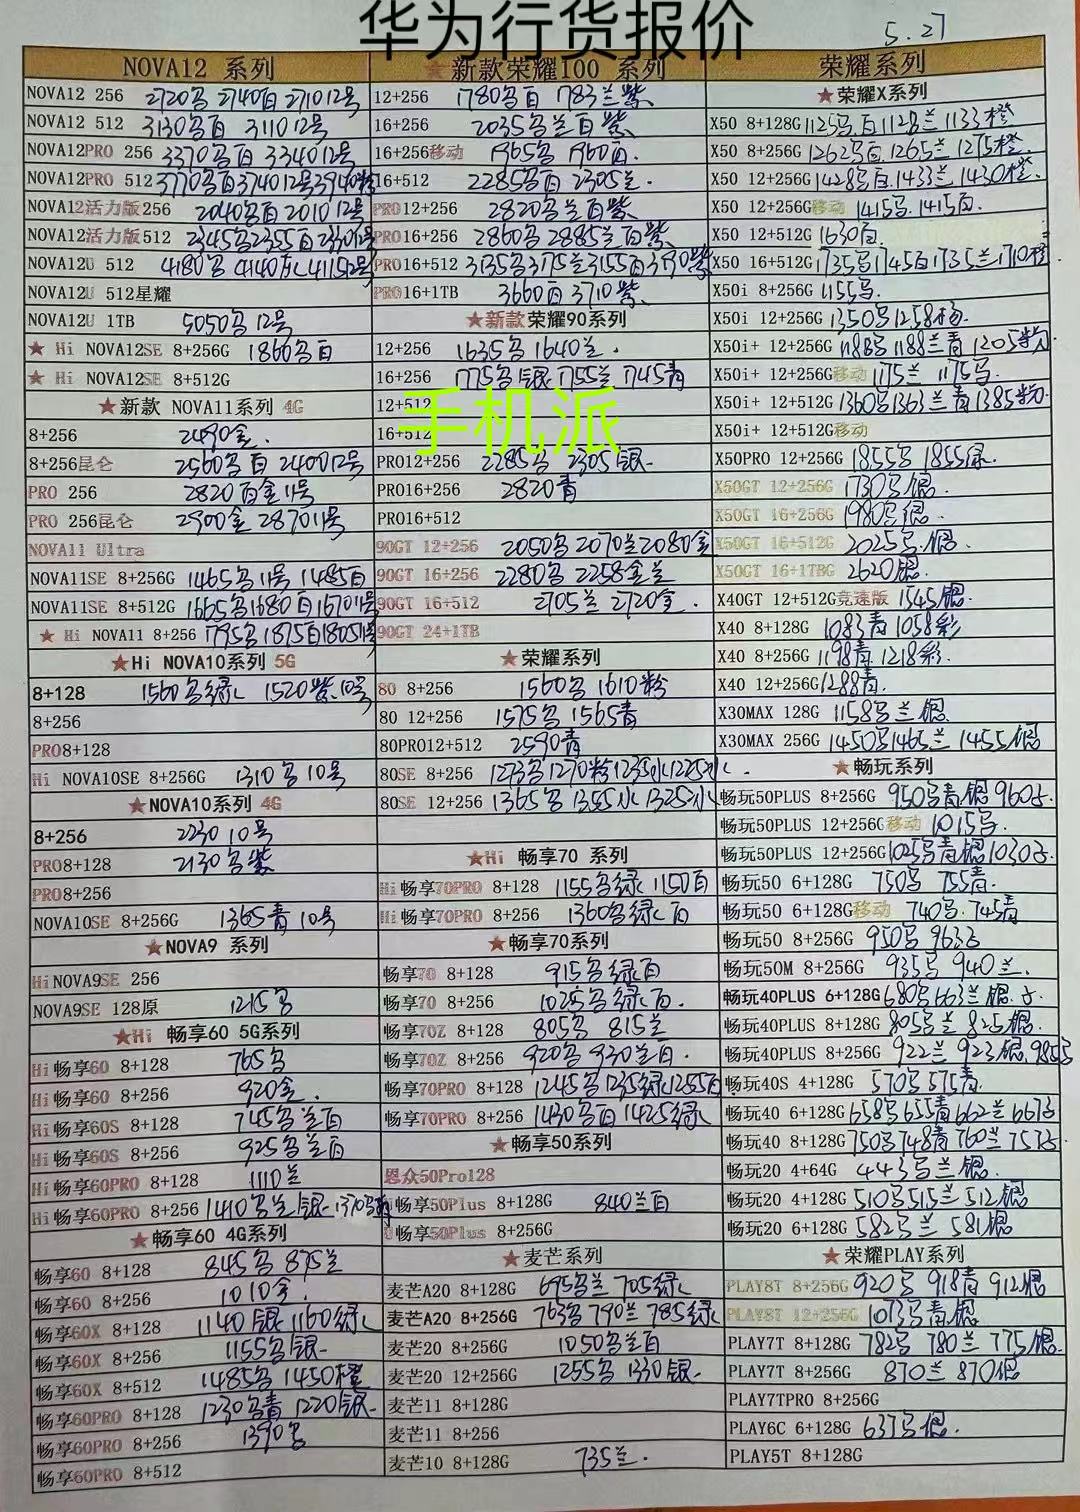 华为行货报价
5.27
NOVA12 系列
NOVA12 256 2720 2740白 2710 12号
NOVA12 512 3130 白 3110 12号
NOVA12PRO 256 3370 白 3340 12号
NOVA12PRO 512 3770 白 3740 12号 3940粉
NOVA12活力版256 2040 白 2010 12号
NOVA12活力版512 2345 2355白 2330 12号
NOVA12U 512 4180 4140 4115 12号
NOVA12U 512星耀
NOVA12U 1TB 5050 12号
★ Hi NOVA12SE 8+256G 1860 白
★ Hi NOVA12SE 8+512G
★新款 NOVA11系列 4G
8+256 2490金.
8+256昆仑 2560 白 2400 12号
PRO 256 2820 白金 11号
PRO 256昆仑 2900金 2870 11号
NOVA11 Ultra
NOVA11SE 8+256G 1465 11号 1485白
NOVA11SE 8+512G 1665 1680白 1670 11号
★ Hi NOVA11 8+256 1795 1875白 1805 11号
★Hi NOVA10系列 5G
8+128 1560 绿 1520紫.10号
8+256
PRO8+128
Hi NOVA10SE 8+256G 1310 10号
★NOVA10系列 4G
8+256 2230 10号
PRO8+128 2130 紫
PRO8+256
NOVA10SE 8+256G 1365青 10号
★NOVA9 系列
Hi NOVA9SE 256
NOVA9SE 128原 1215
★Hi 畅享60 5G系列
Hi 畅享60 8+128 765
Hi 畅享60 8+256 920金.
Hi 畅享60S 8+128 745 兰白
Hi 畅享60S 8+256 925 兰白
Hi 畅享60PRO 8+128 1110兰
Hi 畅享60PRO 8+256 1410 兰银 1370
★畅享60 4G系列
畅享60 8+128 845 875兰
畅享60 8+256 1010金.
畅享60X 8+128 1140银 1160绿
畅享60X 8+256 1155 银
畅享60X 8+512 1485 1450橙
畅享60PRO 8+128 1230 青 1220银
畅享60PRO 8+256 1390
畅享60PRO 8+512
★新款荣耀100 系列
12+256 1780 白 1783兰紫
16+256 2035 兰白紫
16+256移动 1965 1960白.
16+512 2285 白 2305兰.
PRO12+256 2820 兰白紫
PRO16+256 2860 2885兰白紫
PRO16+512 3135 3175兰 3155白 3190紫
PRO16+1TB 3660白 3710紫
★新款荣耀90系列
12+256 1635 1640兰.
16+256 1775 银 1755兰 1745青
12+512
手机派
16+512
PRO12+256 2285 2305银
PRO16+256 2820青
PRO16+512
90GT 12+256 2050 2070兰 2080金
90GT 16+256 2280 2258金兰
90GT 16+512 2705兰 2720金.
90GT 24+1TB
★荣耀系列
80 8+256 1560 1610粉
80 12+256 1575 1565青
80PRO12+512 2590青
80SE 8+256 1273 1270粉 1235冰 1225冰
80SE 12+256 1365 1355冰 1325冰
★Hi 畅享70 系列
Hi 畅享70PRO 8+128 1155 绿 1150白
Hi 畅享70PRO 8+256 1360 绿白
★畅享70系列
畅享70 8+128 915 绿白
畅享70 8+256 1025 绿白.
畅享70Z 8+128 805 815兰
畅享70Z 8+256 920 930兰白.
畅享70PRO 8+128 1245 1235绿 1255白
畅享70PRO 8+256 1430 白 1425绿
★畅享50系列
恩众50Pro128
畅享50Plus 8+128G 840兰白
畅享50Plus 8+256G
★麦芒系列
麦芒A20 8+128G 695 兰 705绿
麦芒A20 8+256G 763 790兰 785绿
麦芒20 8+256G 1050 兰白
麦芒20 12+256G 1255 1330银
麦芒11 8+128G
麦芒11 8+256
麦芒10 8+128G 735兰.
荣耀系列
★荣耀X系列
X50 8+128G 1125 白 1128兰 1133橙
X50 8+256G 1262 白 1265兰 1275橙.
X50 12+256G 1428 白 1433兰 1430橙.
X50 12+256G移动 1415 1415白.
X50 12+512G 1630白.
X50 16+512G 1735 1745白 1735兰 1710橙
X50i 8+256G 1155
X50i 12+256G 1350
X50i+ 12+256G 1188 1188兰青 1205粉
X50i+ 12+256G移动 1175兰 1175
X50i+ 12+512G 1360 1363兰青 1385粉.
X50i+ 12+512G移动
X50PRO 12+256G 1855 1855绿.
X50GT 12+256G 1730 银.
X50GT 16+256G 1980 银.
X50GT 16+512G 2025 银.
X50GT 16+1TBG 2620银.
X40GT 12+512G竞速版 1545银.
X40 8+128G 1083青 1058彩
X40 8+256G 1198青 1218彩.
X40 12+256G 1288青.
X30MAX 128G 1158 兰银
X30MAX 256G 1450 1465兰 1455银
★畅玩系列
畅玩50PLUS 8+256G 950 青银 960
畅玩50PLUS 12+256G移动 1015
畅玩50PLUS 12+256G 1025 青银 1030
畅玩50 6+128G 750 755青.
畅玩50 6+128G移动 740 745青
畅玩50 8+256G 950 963
畅玩50M 8+256G 935 940兰.
畅玩40PLUS 6+128G 680 663兰银.
畅玩40PLUS 8+128G 805 兰 825银.
畅玩40PLUS 8+256G 922兰 923银 985
畅玩40S 4+128G 570 575青.
畅玩40 6+128G 658 655青 662兰 667
畅玩40 8+128G 750 748青 760兰 757
畅玩20 4+64G 443 兰银.
畅玩20 4+128G 510 515兰 512银
畅玩20 6+128G 582 兰 581银
★荣耀PLAY系列
PLAY8T 8+256G 920 918青 912银
PLAY8T 12+256G 1073 青银
PLAY7T 8+128G 782 780兰 775银.
PLAY7T 8+256G 870兰 870银
PLAY7TPRO 8+256G
PLAY6C 6+128G 637 银.
PLAY5T 8+128G